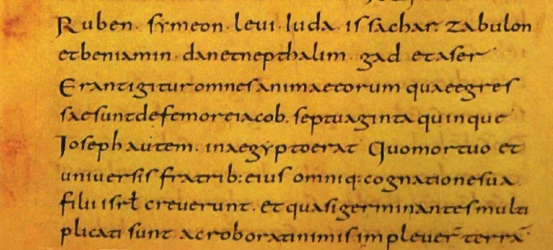 Ruben· sẏmeon· levi· Iuda· issachar· zabulon
etbeniamin· danetnepthalim· gad· etaser·
Erantigituromnesanimaeeorum quaeegres
saesuntdefemoreiacob· septuagintaquinque
Ioseph autem· inaegẏptoerat· Quomortuo et
universis fratrib:eius omniq:cognationesua·
filii isrł creverunt· et quasigerminantes multi
plicati sunt· ac roboratinimis impleuer̄ terrā